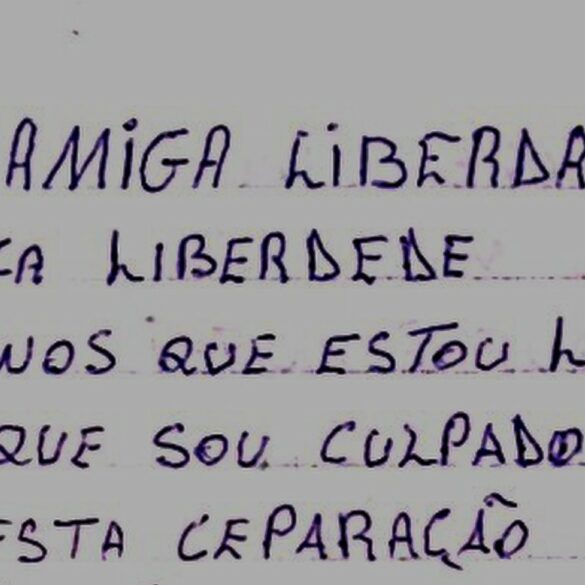 AMIGA LIBERDA
CA LIBERDEDE
NOS QUE ESTOU L
QUE SOU CULPADO
ESTA CEPARAÇÃO